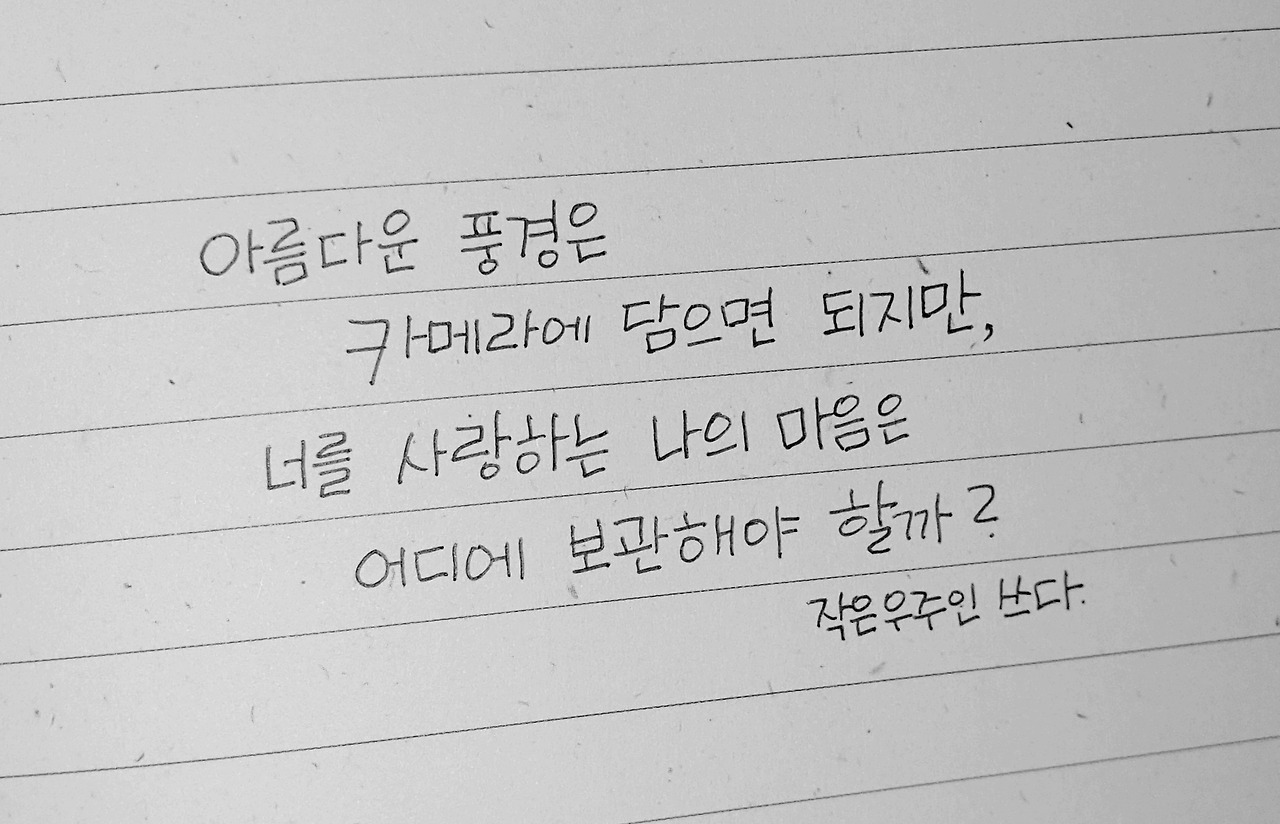 아름다운 풍경은
카메라에 담으면 되지만,
너를 사랑하는 나의 마음은
어디에 보관해야 할까?
작은우주인 쓰다.